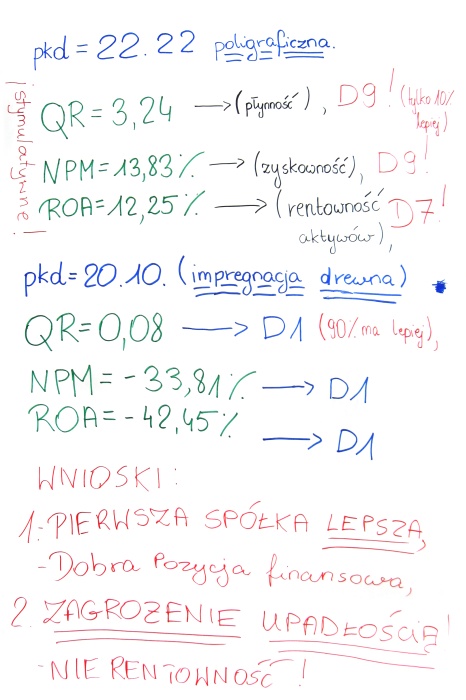 pkd = 22.22 poligraficzna.
! stymulatywne !
QR = 3,24 → (płynność), D9! (tylko 10% lepiej)
NPM = 13,83% → (zyskowność), D9!
ROA = 12,25% → (rentowność aktywów), D7!
pkd = 20.10. (impregnacja drewna)
QR = 0,08 → D1 (90% ma lepiej),
NPM = -33,81% → D1
ROA = -42,45% → D1
WNIOSKI:
1. - PIERWSZA SPÓŁKA LEPSZA,
- Dobra Pozycja finansowa,
2. ZAGROŻENIE UPADŁOŚCIĄ!
- NIERENTOWNOŚĆ!